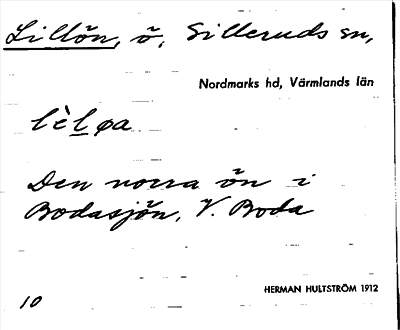 Lillön, ö, Silleruds sn,
Nordmarks hd, Värmlands län
lèløa
Den norra ön i
Bodasjön, V. Boda
HERMAN HULTSTRÖM 1912
10